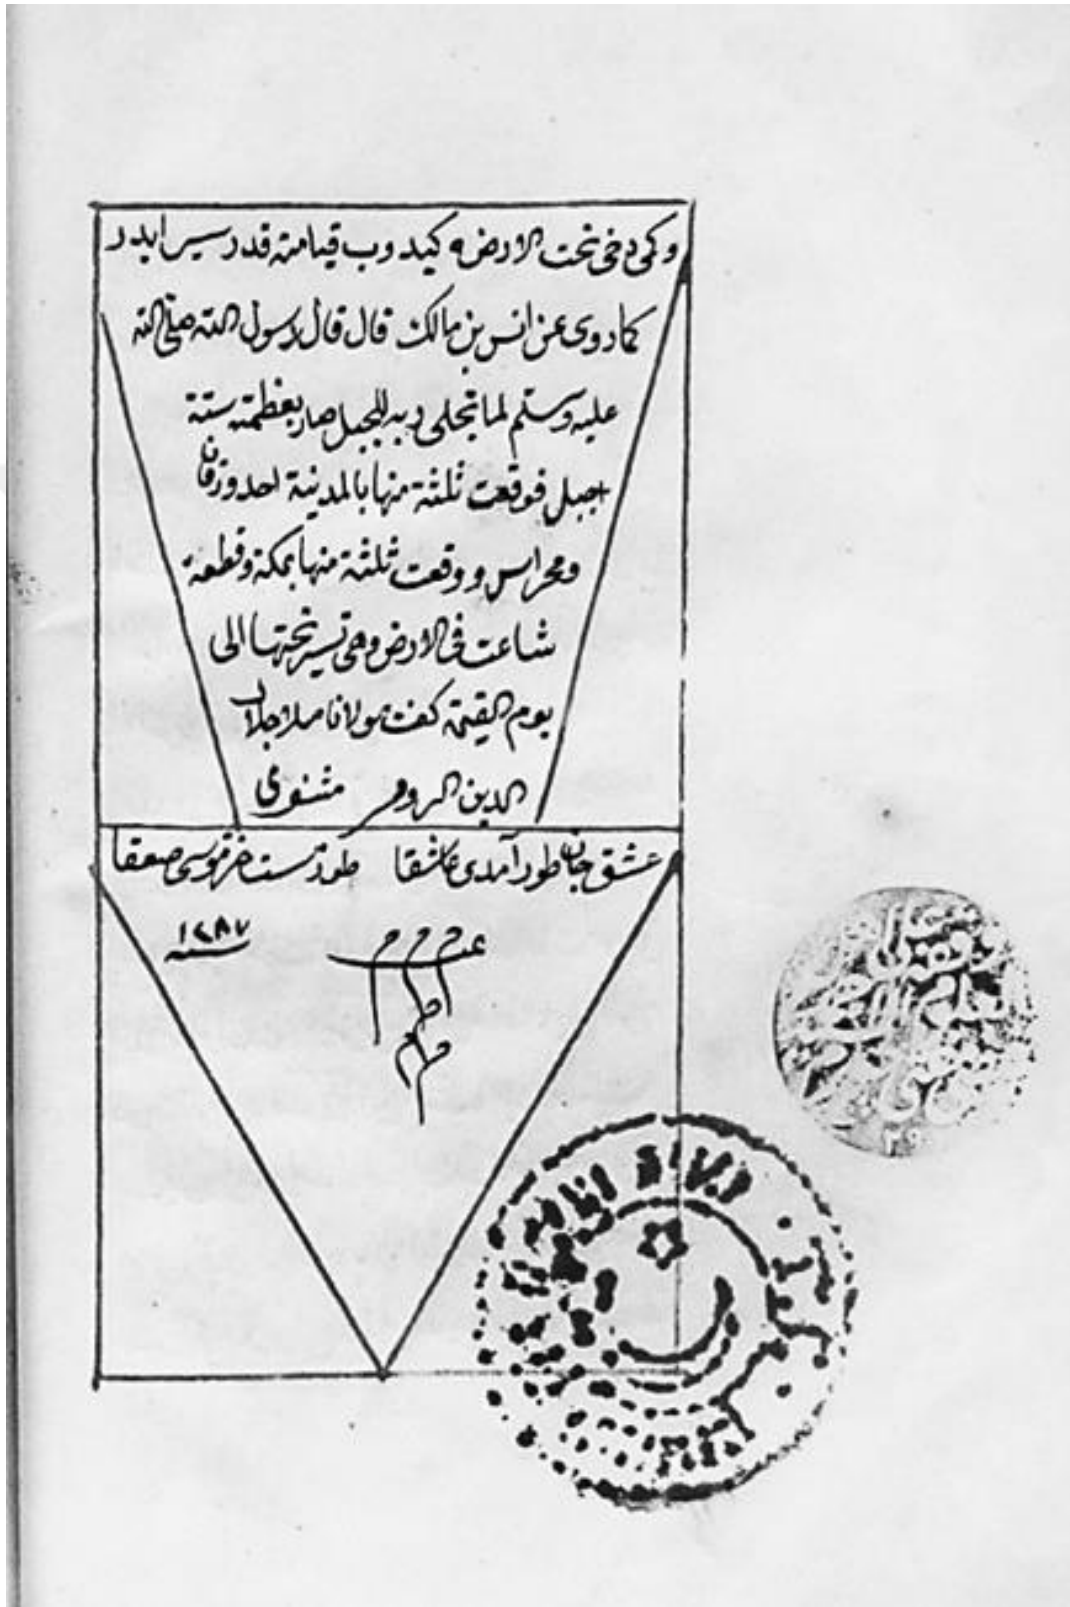 وکمی دخی تحت الارضه کیدوب قیامته قدر سیر ایدر
کما روی عن انس بن مالك قال قال رسول الله صلی الله
علیه وسلم لما تجلی ربه للجبل صار بعظمته ستة
اجبل فوقعت ثلثة منها بالمدینة احد وورقان
ومحراس ووقعت ثلثة منها بمکة وقطعة
شاعت فی الارض وهی تسیر تحتها الی
یوم القیمة کفت مولانا ملا جلال
الدین الرومی مثنوی
عشق جان طور آمدی عاشقا طور مست خر موسی صعقا
سنه ١٢٨٧